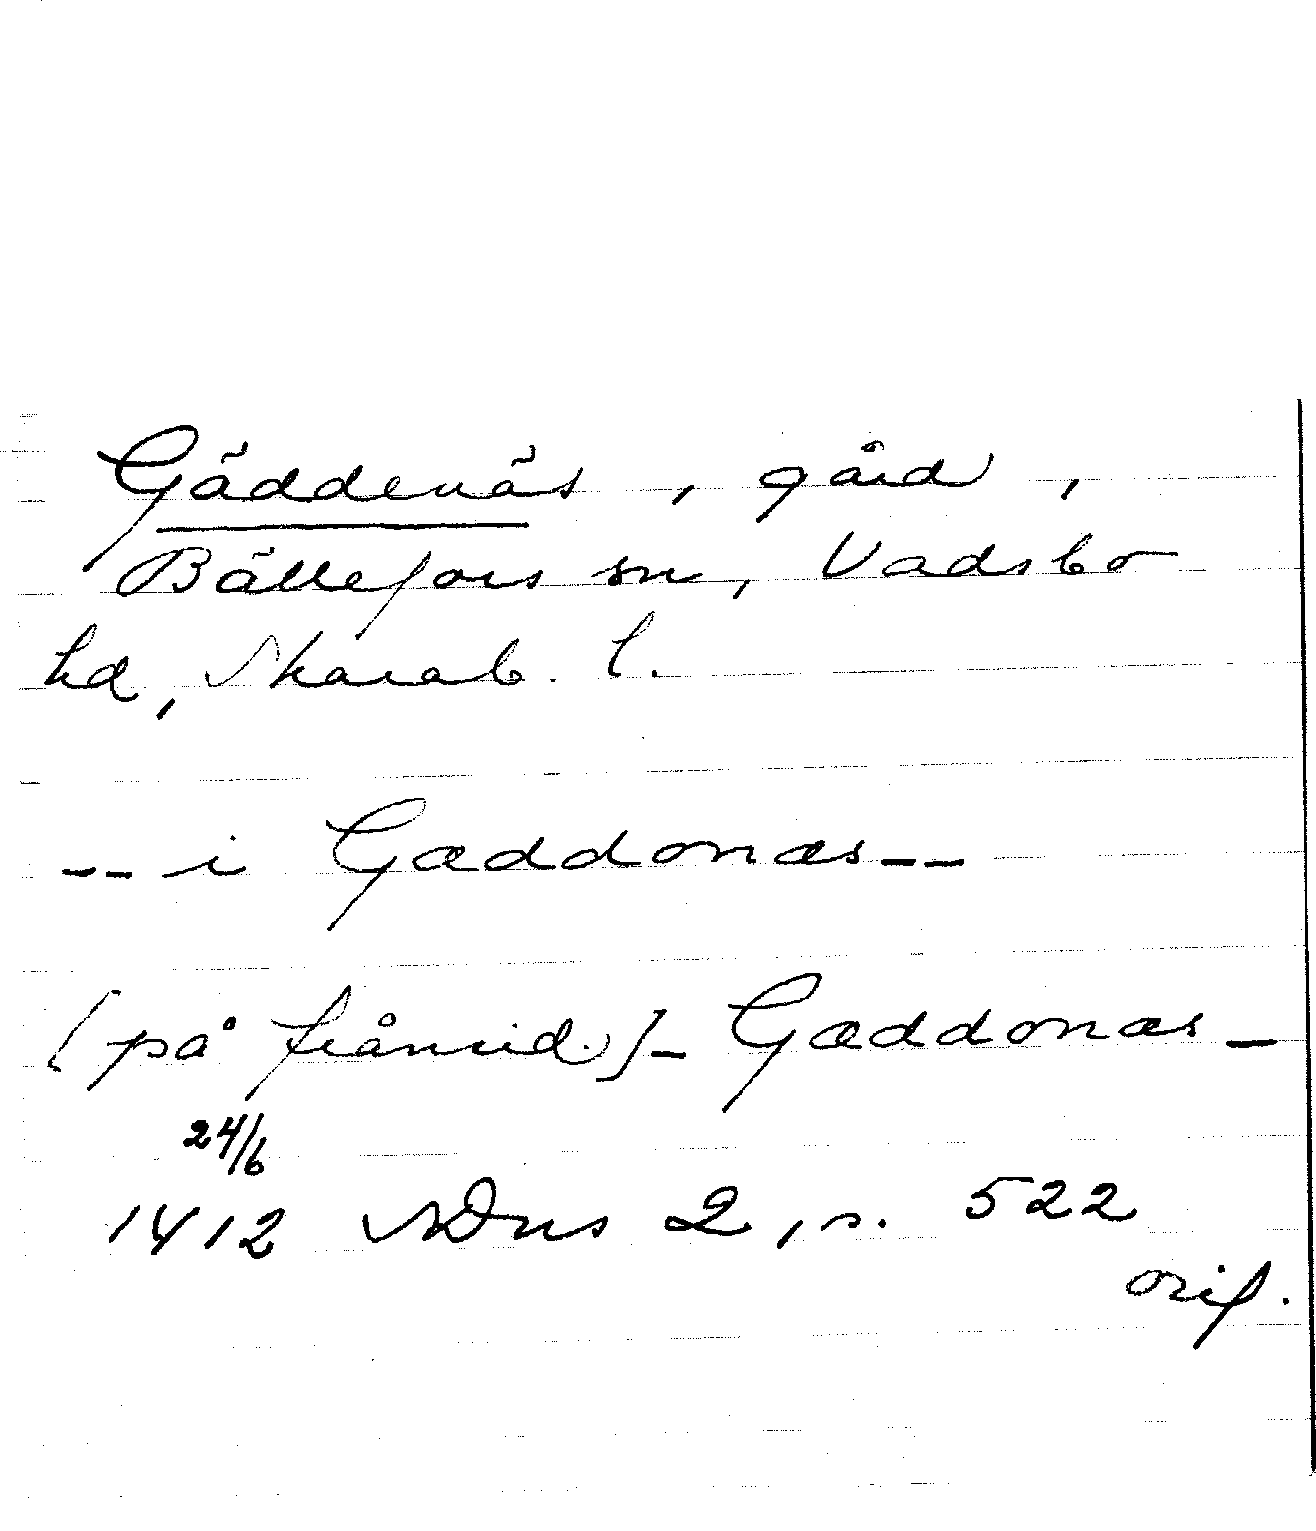 Gäddenäs, gård,
Bällefors sn, Vadsbo
hd, Skarab. l.
-- i Gæddonæs --
[på frånsid.] - Gæddonæs -
24/6
1412 SDns 2, s. 522
orig.